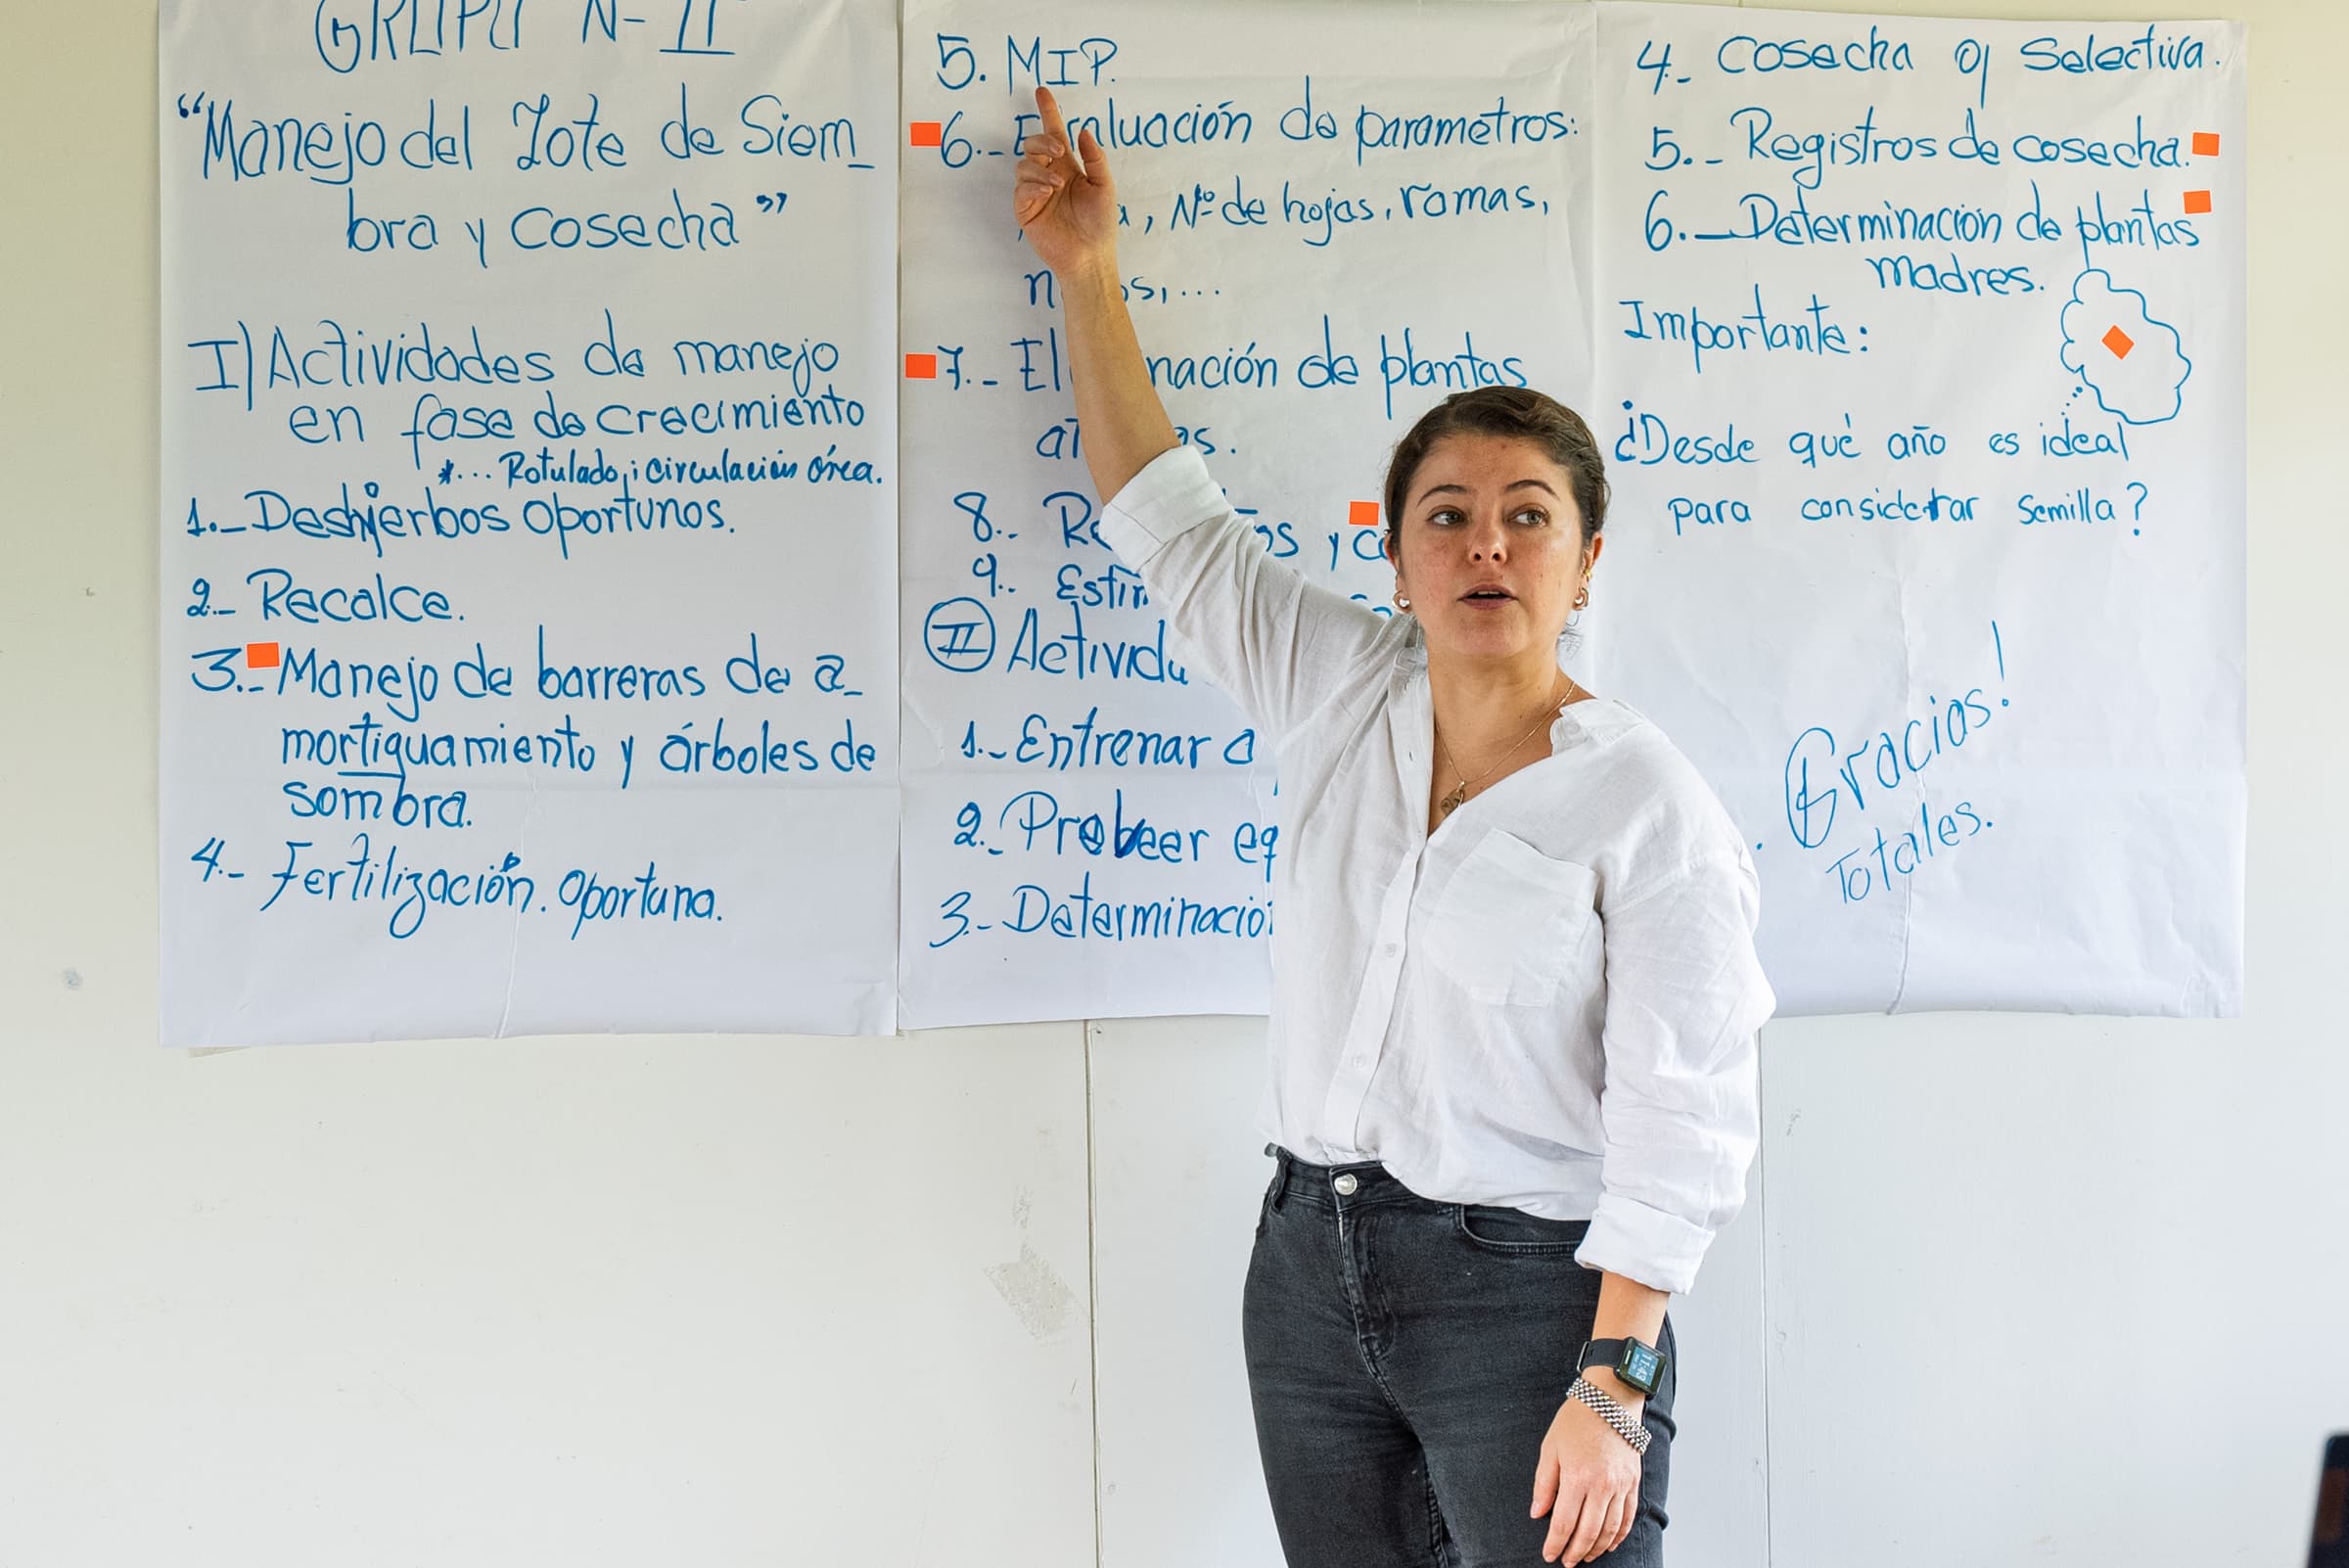 GRUPO N-II
"Manejo del Lote de Siem_
bra y Cosecha"
I) Actividades de manejo
en fase de crecimiento
*... Rotulado, circulación área.
1._ Deshierbos oportunos.
2._ Recalce.
3._ Manejo de barreras de a_
mortiguamiento y árboles de
sombra.
4._ Fertilización. Oportuna.
5. MIP.
6._ Evaluación de parametros:
, Nº de hojas, ramas,
...
7._ Eliminación de plantas
8._ y
9._
II Activida
1._ Entrenar a
2._ Probeer eq
3._ Determinació
4._ Cosecha Selectiva.
5._ Registros de cosecha.
6._ Determinación de plantas
madres.
Importante:
¿Desde qué año es ideal
para considerar semilla?
Gracias!
Totales.